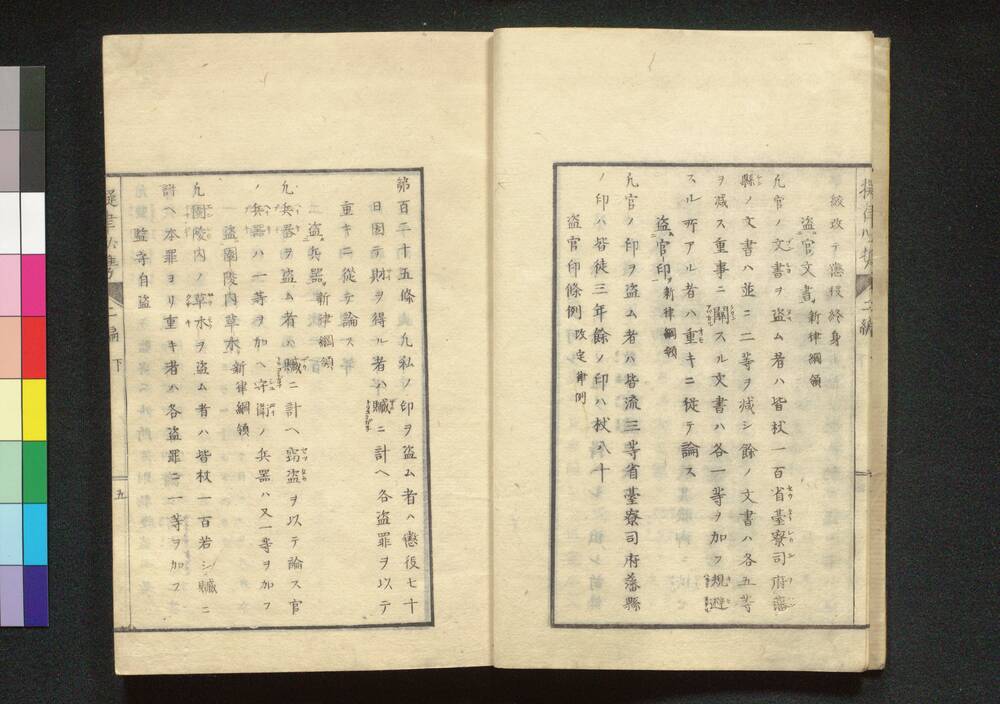 絞改テ懲役終身
盗官文書 新律綱領
凡官ノ文書ヲ盗ム者ハ皆杖一百省臺寮司府藩
縣ノ文書ハ並ニ二等ヲ減シ餘ノ文書ハ各五等
ヲ減ス重事ニ關スル文書ハ各一等ヲ加フ規避
スル所アル者ハ重キニ從テ論ス
盗官印 新律綱領
凡官ノ印ヲ盗ム者ハ皆流三等省臺寮司府藩縣
ノ印ハ皆徒三年餘ノ印ハ杖八十
盗官印條例 改定律例
第百二十五條 凡私ノ印ヲ盗ム者ハ懲役七十
日因テ財ヲ得ル者ハ贓ニ計ヘ各盗罪ヲ以テ
重キニ從テ論ス
盗兵器 新律綱領
凡兵器ヲ盗ム者ハ贓ニ計ヘ竊盗ヲ以テ論ス官
ノ兵器ハ一等ヲ加ヘ守衛ノ兵器ハ又一等ヲ加フ
盗園陵内草木 新律綱領
凡園陵内ノ草木ヲ盗ム者ハ皆杖一百若シ贓ニ
計ヘ本罪ヨリ重キ者ハ各盗罪ニ一等ヲ加フ
監守自盗
二編 下 五